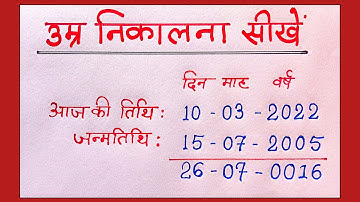 उम्र निकालना सीखें
दिन माह वर्ष
आज की तिथि : 10 - 03 - 2022
जन्मतिथि : 15 - 07 - 2005
26 - 07 - 0016